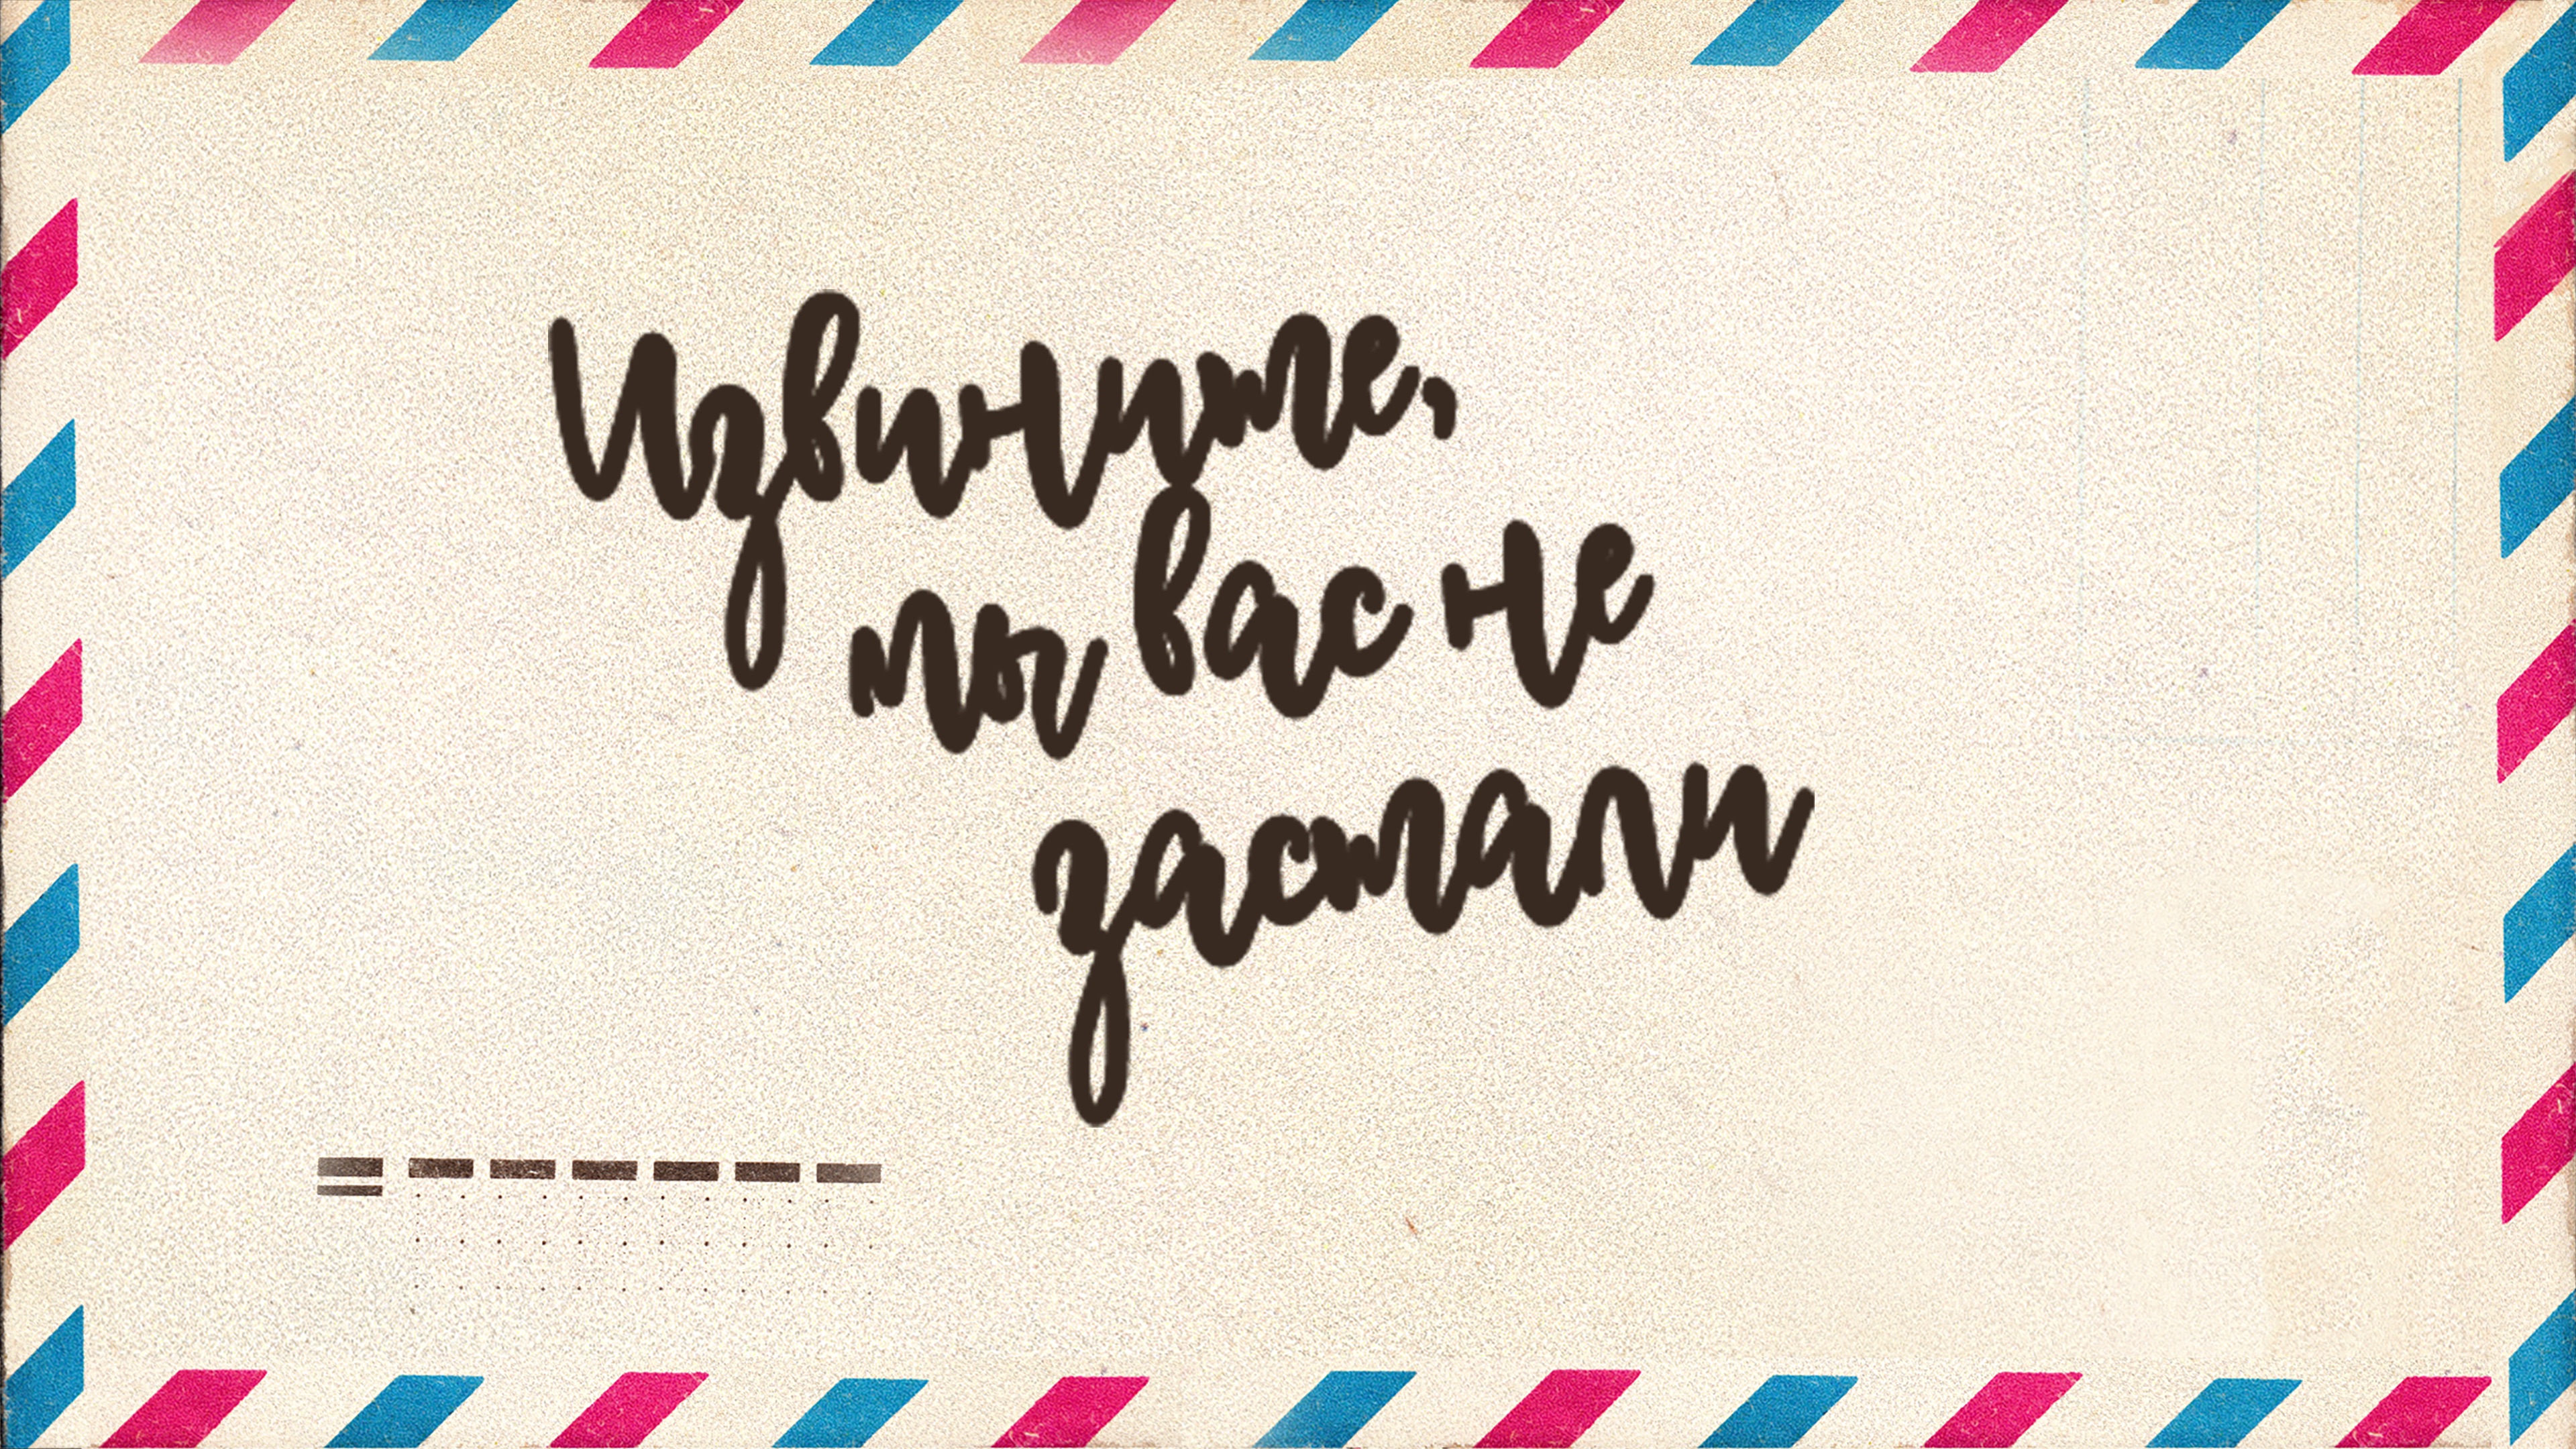 Извините,
мы вас не
застали